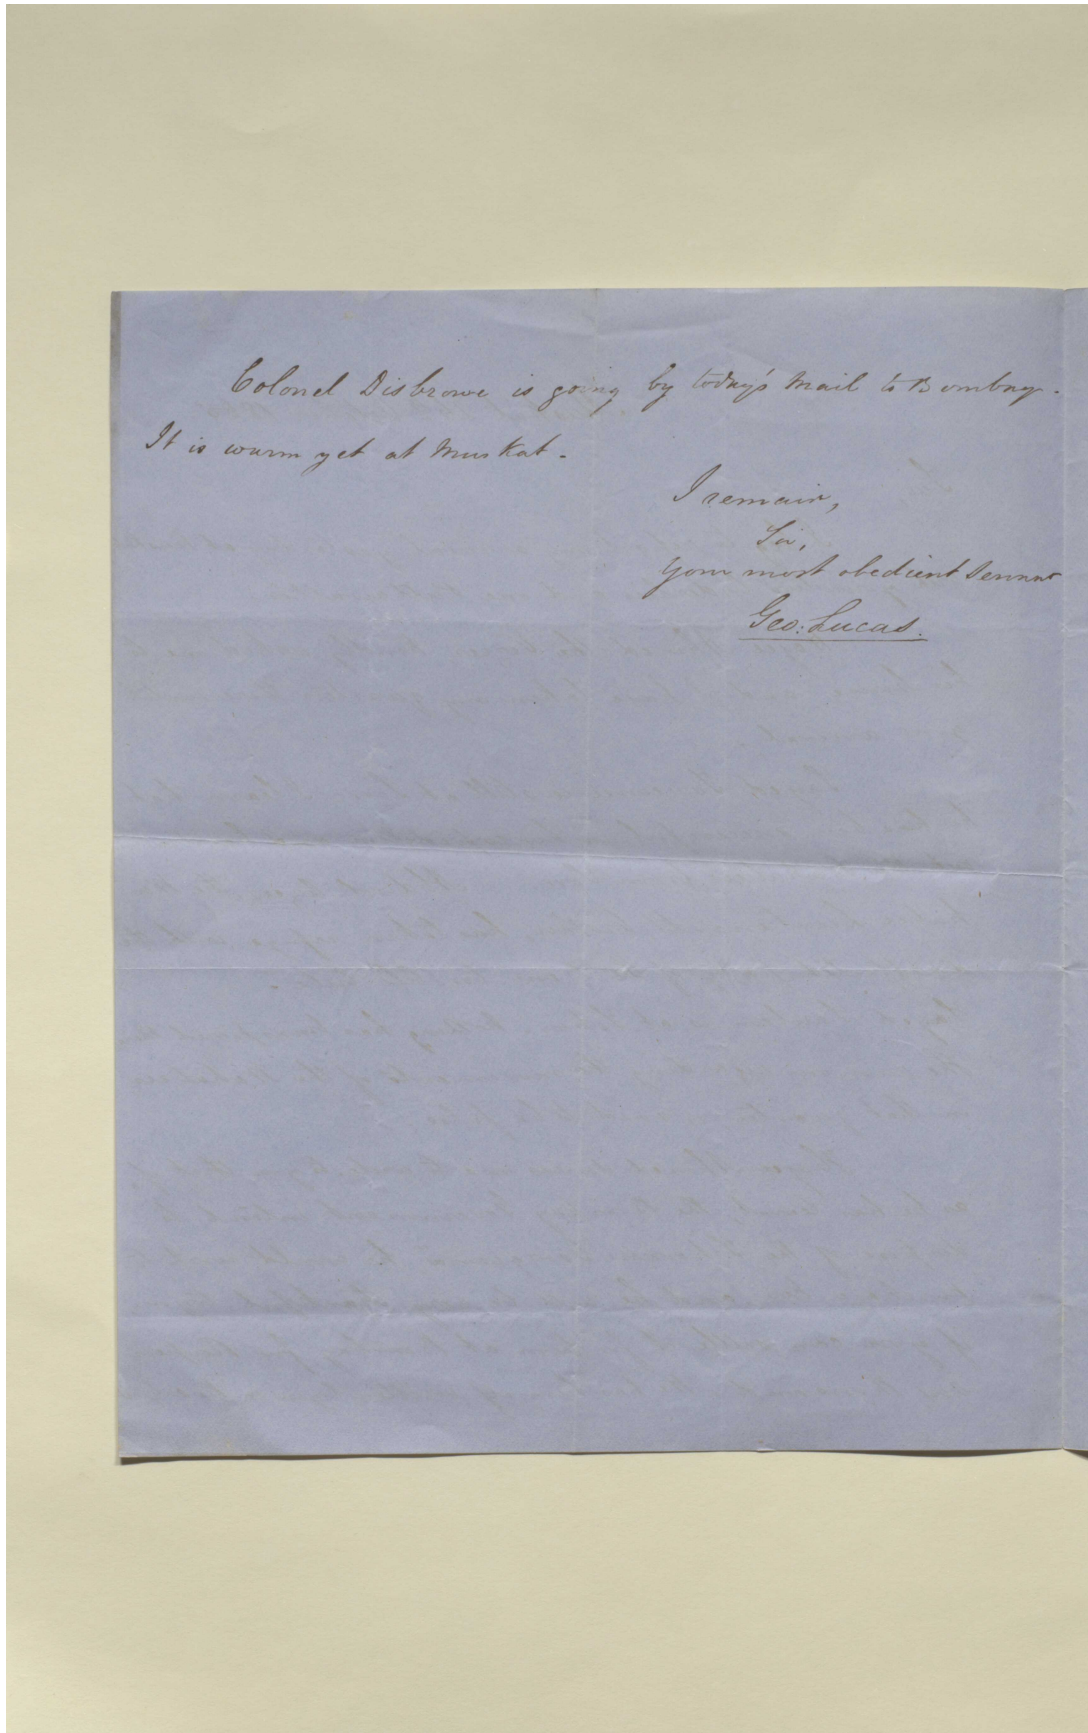 Colonel Disbrowe is going by today's Mail to Bombay.
It is warm yet at Muskat.
I remain,
Sir,
Your most obedient Servant
Geo: Lucas.